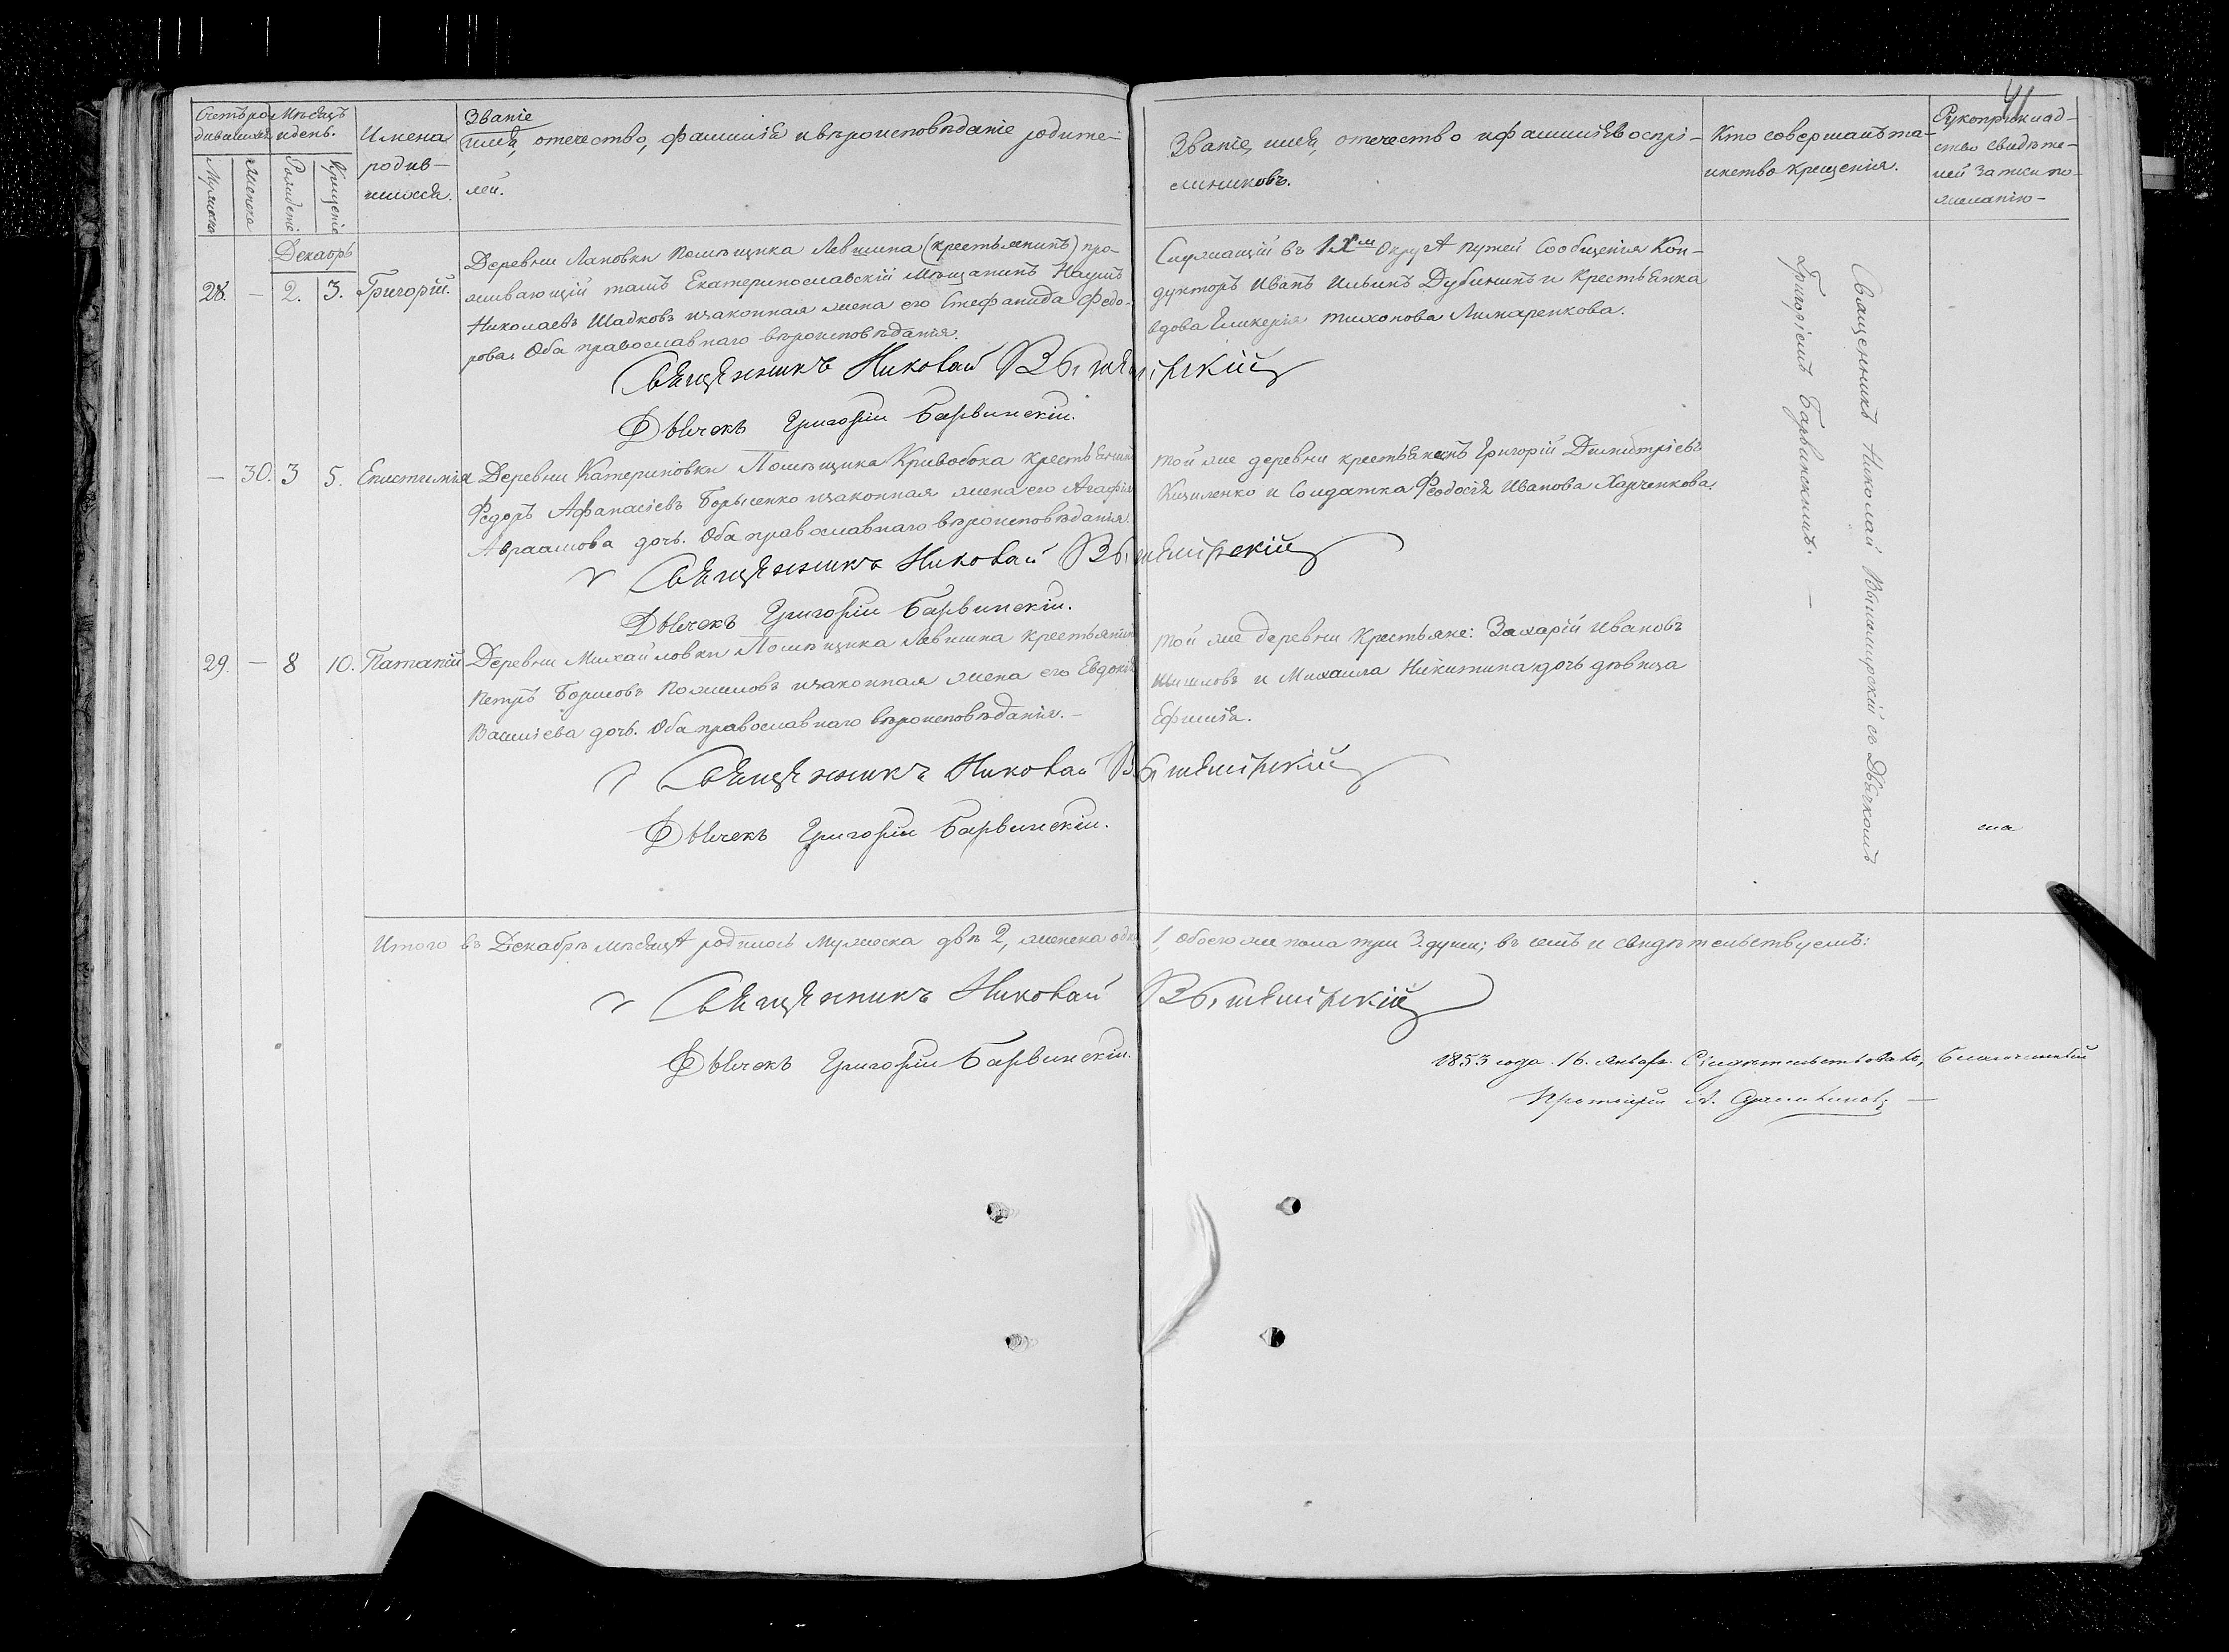 41
Счетъ ро-
дившихся
Мѣсяцъ
и день.
Мужеска
Женска
Рожденія
Крещенія
Имена
родив-
шихся.
Званіе
имя, отечество, фамилія и вѣроисповѣданіе родите-
лей.
Званіе, имя, отечество и фамилія воспрі-
емниковъ.
Кто совершалъ та-
инство крещенія.
Рукоприклад-
ство свидѣте-
лей записи по
желанію
Декабрь
28. — 2. 3. Григорій.
Деревни Лановки Помѣщика Левшина (крестьянинъ) про-
живающій тамъ Екатеринославскій Мѣщанинъ Наумъ
Николаевъ Шадковъ и законная жена его Стефанида Федо-
рова. Оба православнаго вѣроисповѣданія.
Служащій въ IX-м Округѣ путей Сообщенія Кон-
дукторъ Иванъ Ильинъ Дубининъ и крестьянка
вдова Гликерія Тихонова Лимаренкова.
Священникъ Николай Вышемірскій
Дьячекъ Григорій Барвинскій.
— 30. 3 5. Епистимія
Деревни Катериновки Помѣщика Кривобока крестьянинъ
Федоръ Афанасіевъ Борысенко и законная жена его Агафія
Авраамова дочь. Оба православнаго вѣроисповѣданія.
Той же деревни крестьянинъ Григорій Димитріевъ
и Солдатка Феодосія Иванова Харченкова.
Священникъ Николай Вышемірскій
Дьячекъ Григорій Барвинскій.
29. — 8 10. Патапій
Деревни Михайловки Помѣщика Левшина крестьянинъ
Петръ Борисовъ и законная жена его Евдокія
Василіева дочь. Оба православнаго вѣроисповѣданія. —
Той же деревни Крестьяне: Захарій Ивановъ
Шишловъ и Михаила Никитина дочь дѣвица
Ефимія.
Священникъ Николай Вышемірскій
Дьячекъ Григорій Барвинскій.
Священникъ Николай Вышемирскій съ Дьячкомъ
Григоріемъ Барвинскимъ. —
Итого въ Декабрѣ мѣсяцѣ родилось Мужеска двѣ 2, женска одна 1, обоего же пола три 3. души; въ чемъ и свидѣтельствуемъ:
Священникъ Николай Вышемірскій
Дьячекъ Григорій Барвинскій.
1853 года. 16. Январь. Свидѣтельствовалъ, благочинный
Протоіерей А.